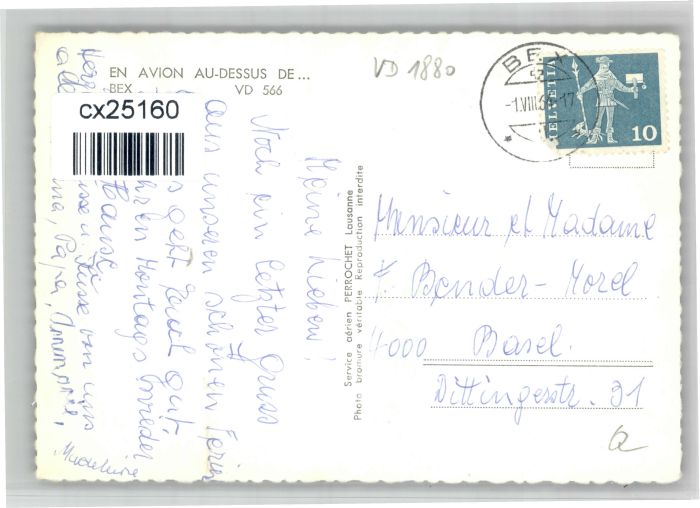 EN AVION AU-DESSUS DE...
BEX VD 566
VD 1880
cx25160
BEX
HELVETIA
10
Service aérien PERROCHET Lausanne
Photo bromure véritable Reproduction interdite
Meine Lieben!
Noch ein letzter Gruss
aus unseren schönen Ferien
geht Euch gut,
Montags wieder
Hause
Küsse von uns
Papa,
Madeleine
Monsieur et Madame
F. Bender-Morel
4000 Basel.
Dittingerstr. 31